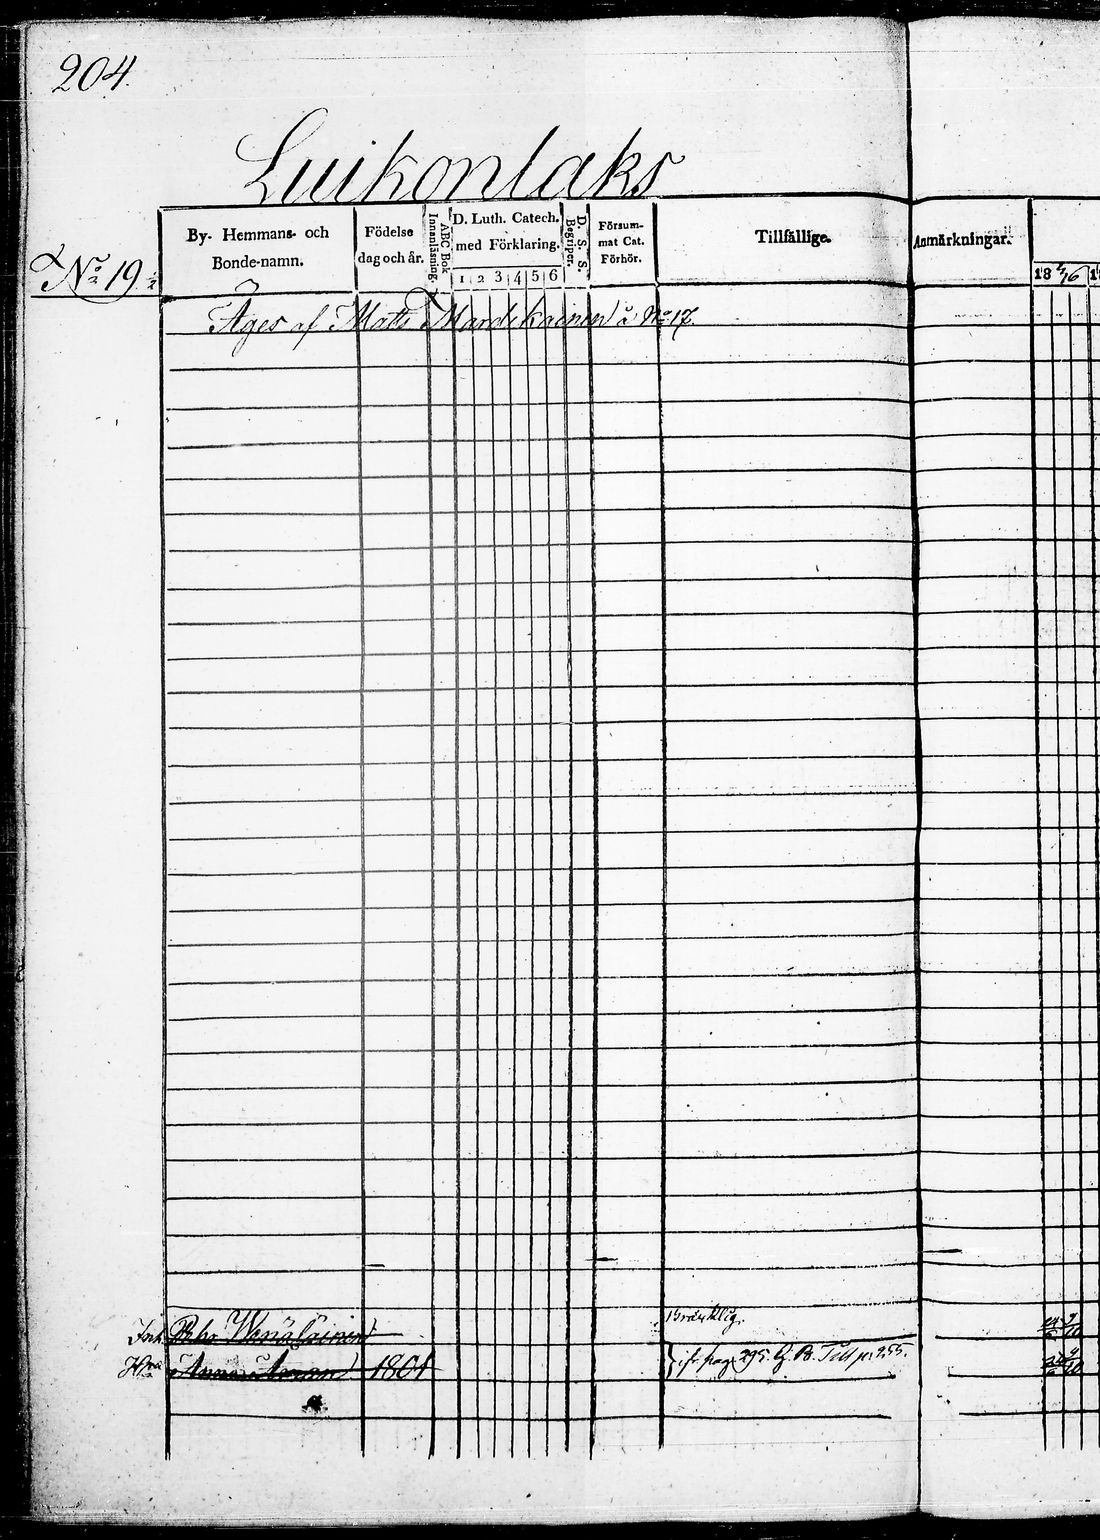 204.
Luikonlaks
No 19
By- Hemmans- och Bonde-namn.
Födelse dag och år.
Innanläsning.
ABC Bok
D. Luth. Catech. med Förklaring.
1 2 3 4 5 6
D. S. S. Begriper.
Försum- mat Cat. Förhör.
Tillfällige.
Anmärkningar.
18
Äges af Matts Mardikainen å No 17.
Inh. Pehr Wenäläinen
Bräcklig.
Hu Anna 1801
fr. pag. 295.